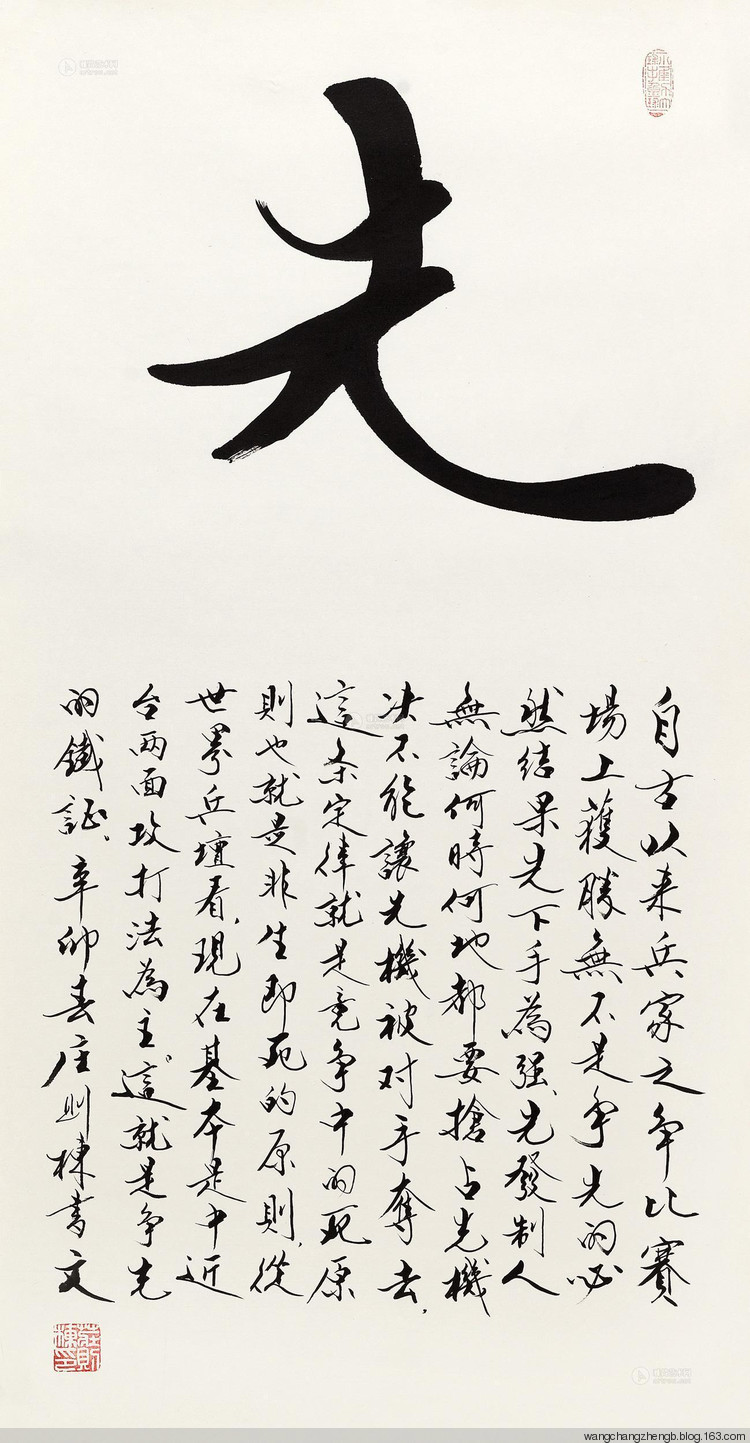 先
自古以来兵家之争比賽
場上獲勝無不是争先的必
然结果先下手為强、先發制人
無論何時何地都要搶占先機
决不能讓先機被对手奪去,
這条定律就是竞争中的死原
則也就是非生即死的原則,從
世界兵壇看,現在基本是中近
台两面攻打法為主。這就是争先
的鐵証、辛卯春庄则棟書文
莊則棟印
wangchangzhengb.blog.163.com